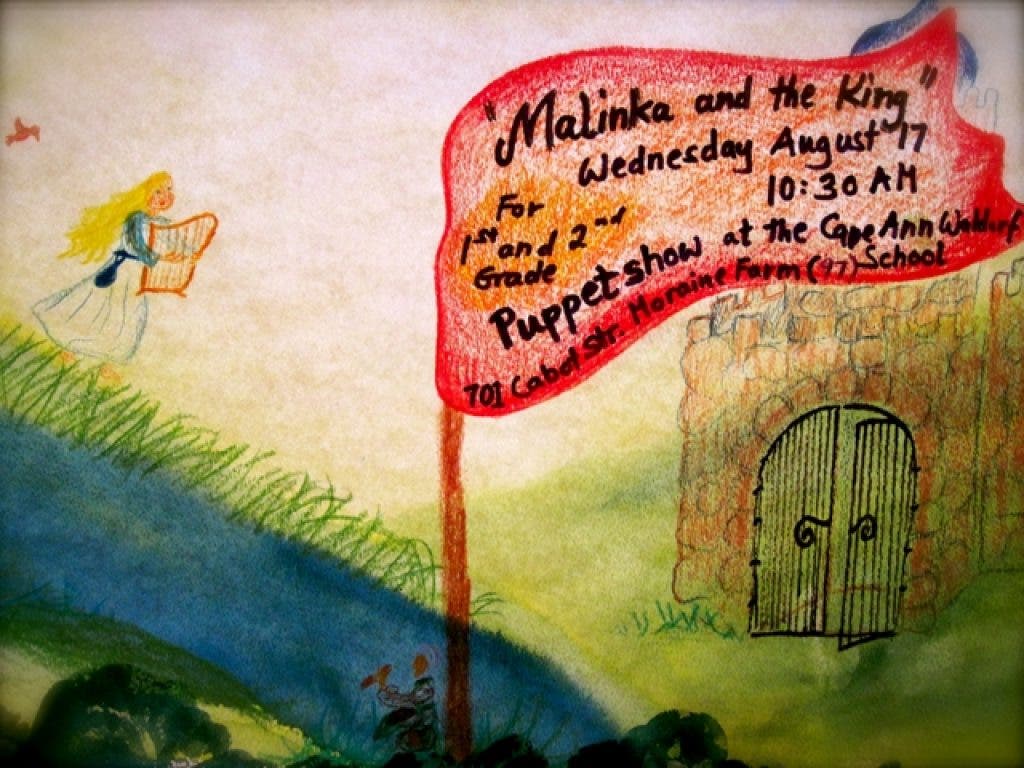 "Malinka and the King"
Wednesday August 17
10:30 AM
For
1st and 2nd
Grade
Puppetshow at the Cape Ann Waldorf
School
701 Cabot str. Moraine Farm (97)